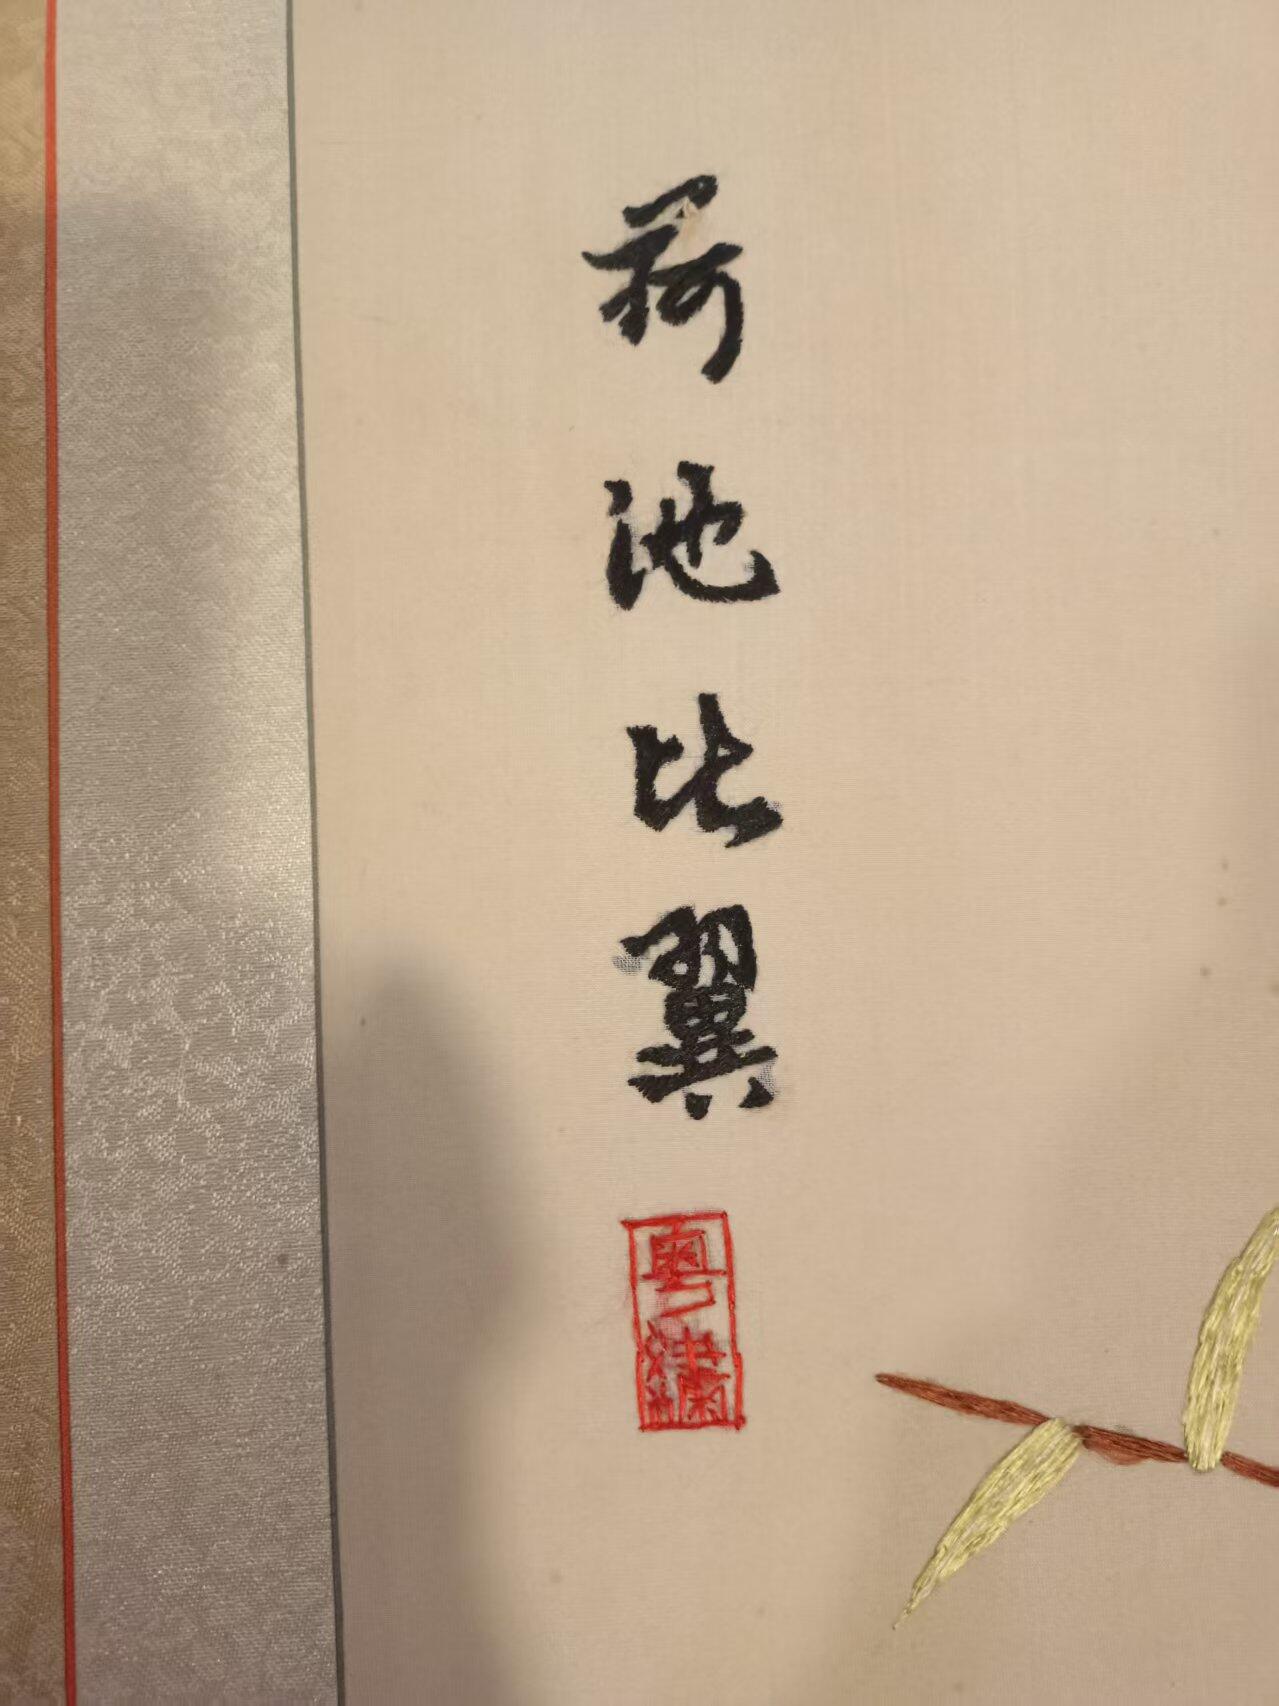 荷池比翼
粤繡